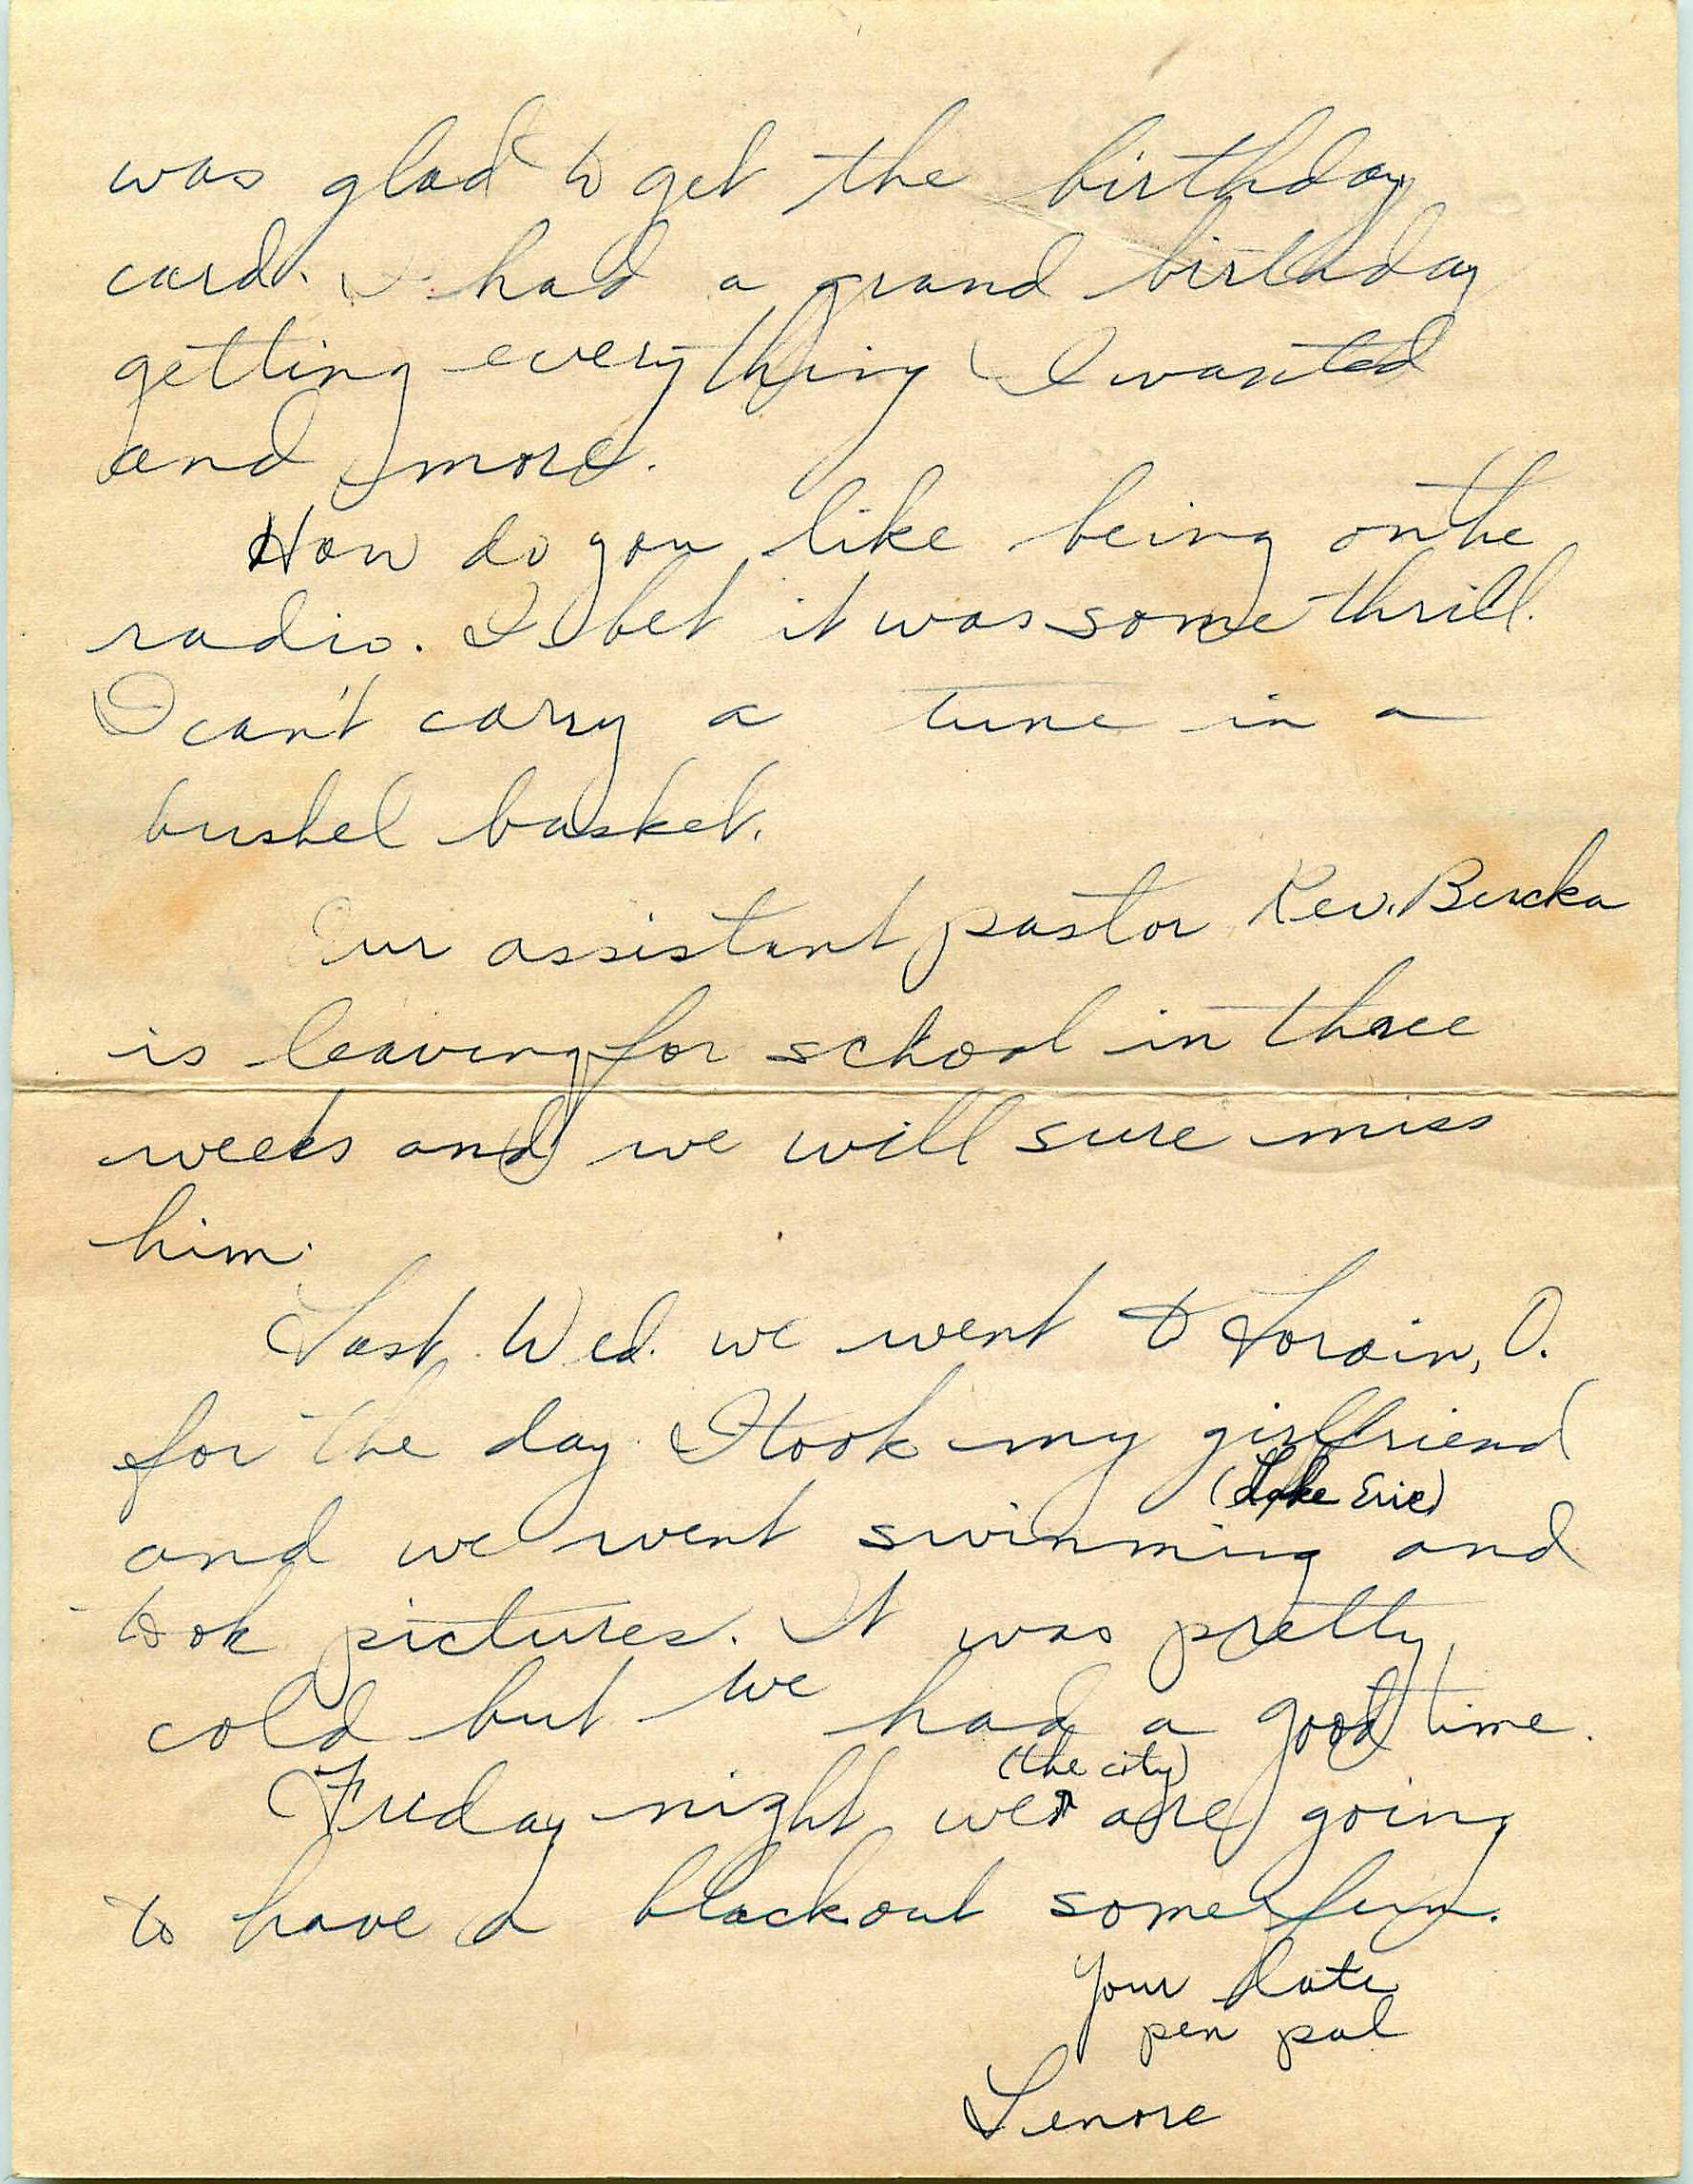 was glad to get the birthday
card. I had a grand birthday
getting everything I wanted
and more.
How do you like being on the
radio. I bet it was some thrill.
I can't carry a tune in a
bushel basket.
Our assistant pastor Rev. Bucka
is leaving for school in three
weeks and we will sure miss
him.
Last Wed. we went to Lorain, O.
for the day. I took my girlfriend
(Lake Erie)
and we went swimming and
took pictures. It was pretty
cold but we had a good time.
(the city)
Friday night we are going
to have a blackout some fun.
Your late
pen pal
Lenore